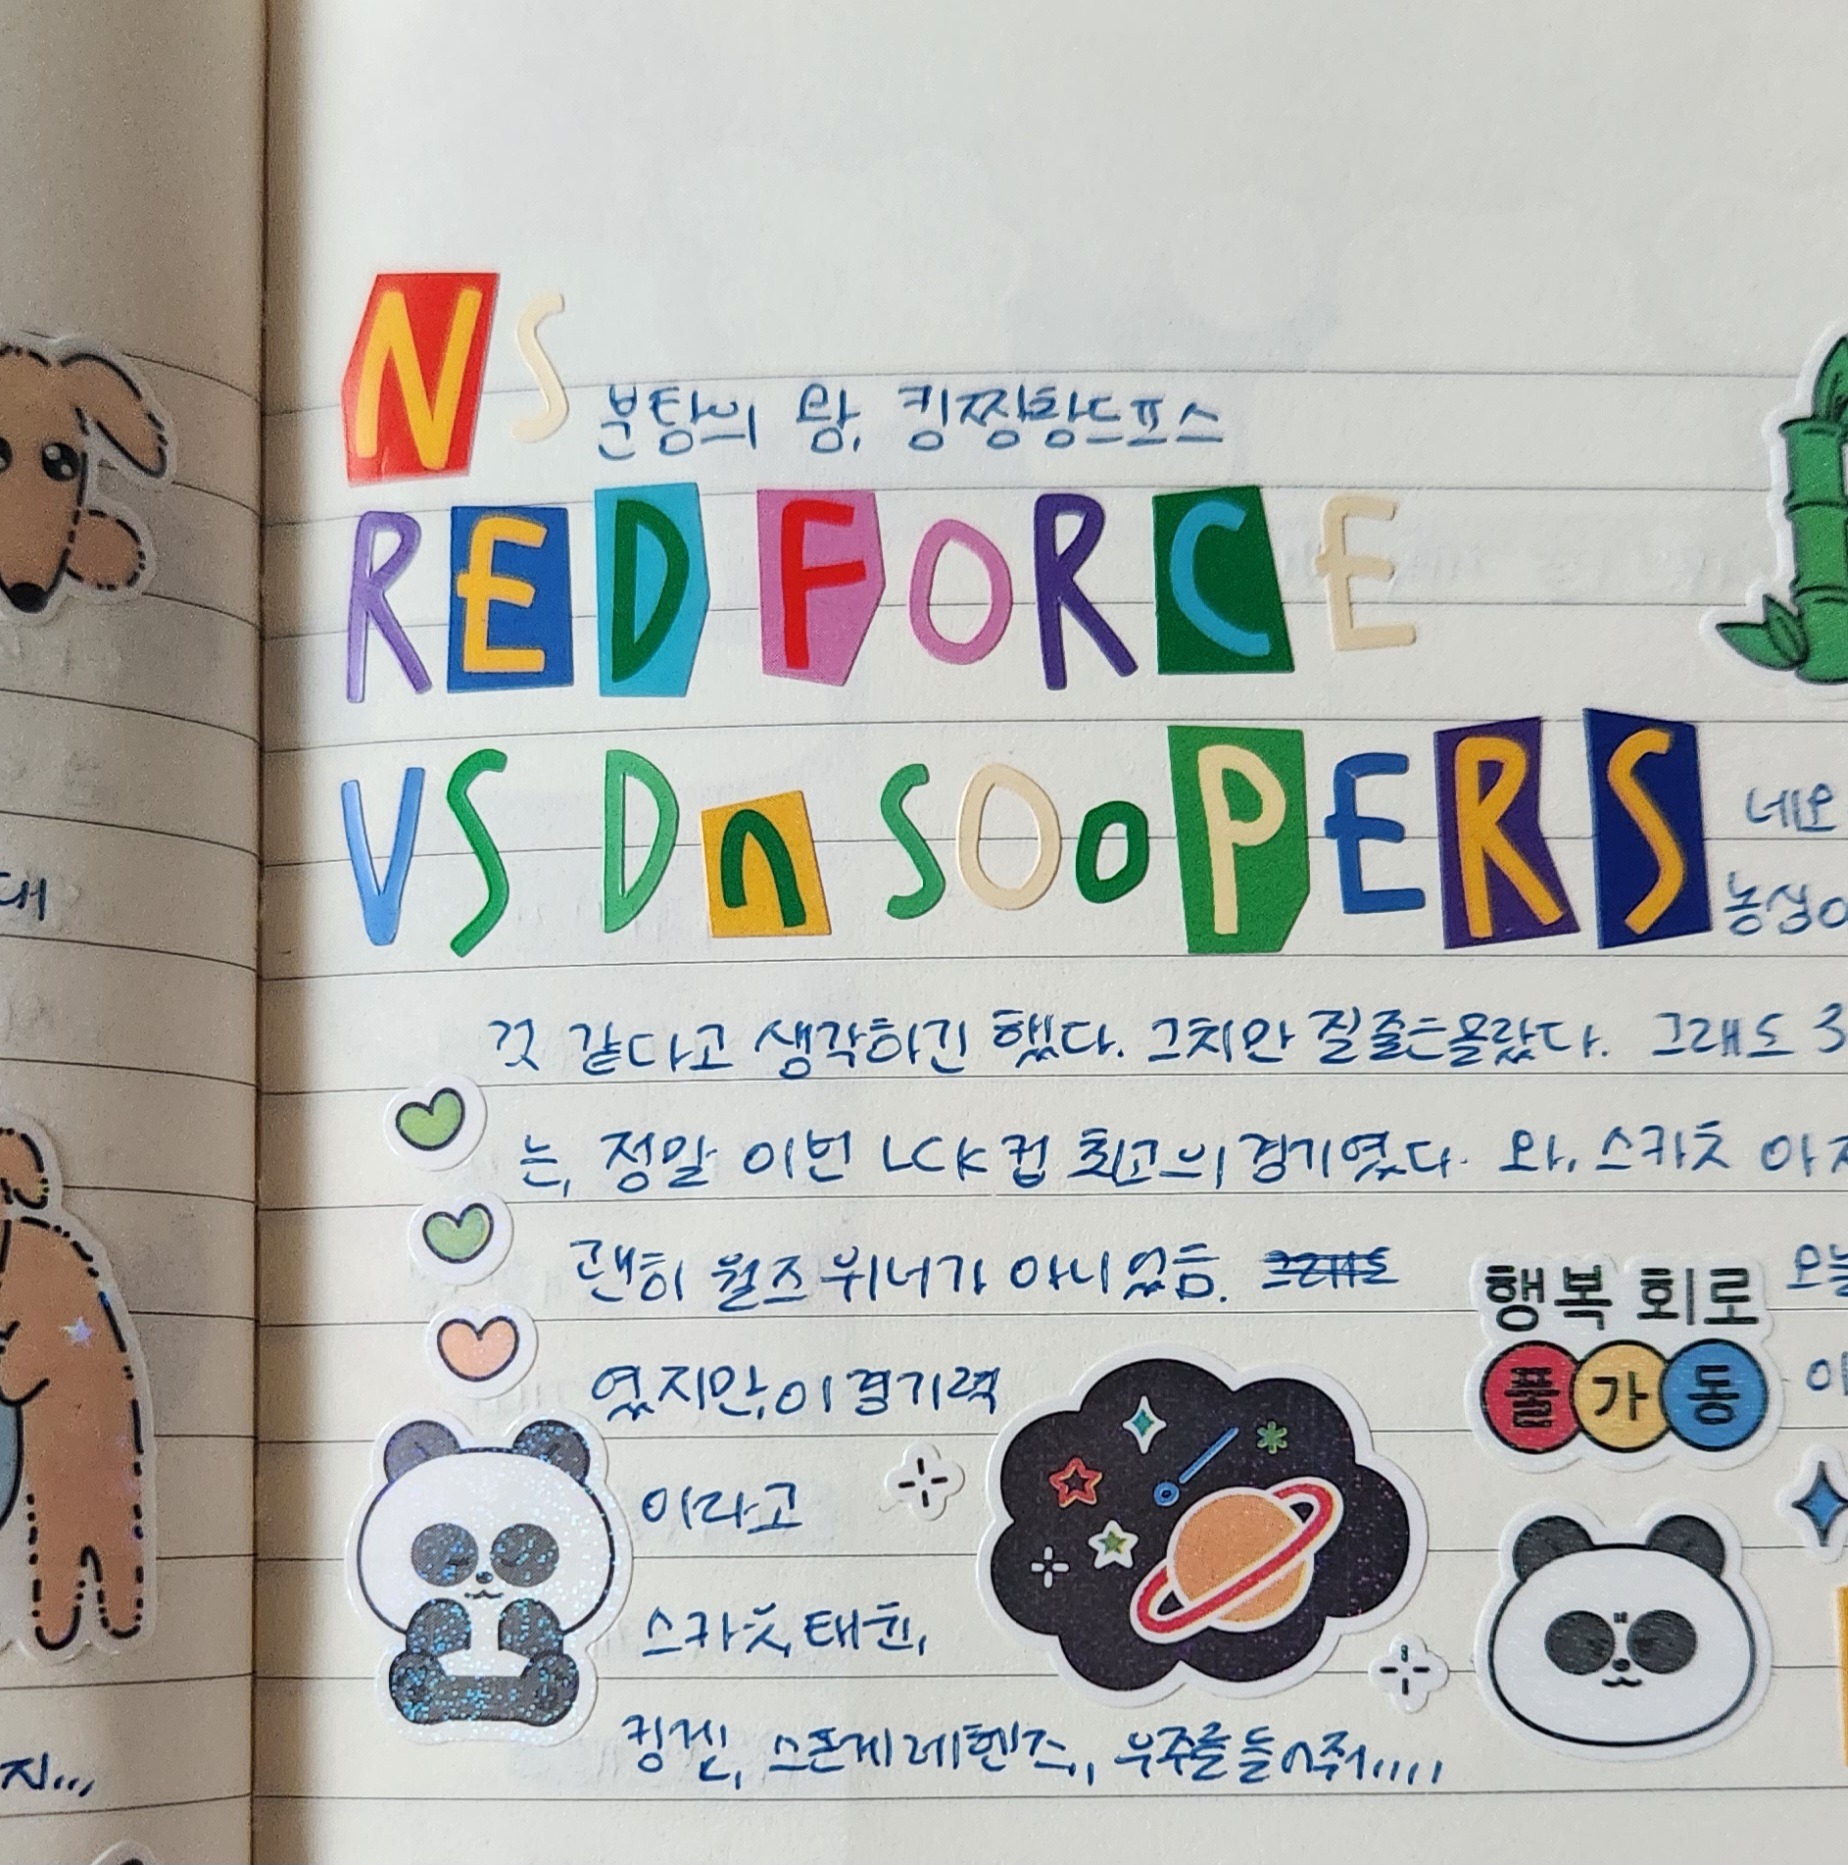 NS 분탕의 왕, 킹짱창드포스
RED FORCE
VS Dn SOOPERS 네오
농심이
것 같다고 생각하긴 했다. 그치만 질줄은몰랐다. 그래도 3
는, 정말 이번 LCK컵 최고의 경기였다. 와, 스카웃 아직
괜히 월즈 위너가 아니었음.
행복 회로
풀가동
였지만, 이 경기력
이라고
스카웃, 태윤,
킹겐, 스폰지 레헨즈, 우주를 들어줘,,,,
대
지...